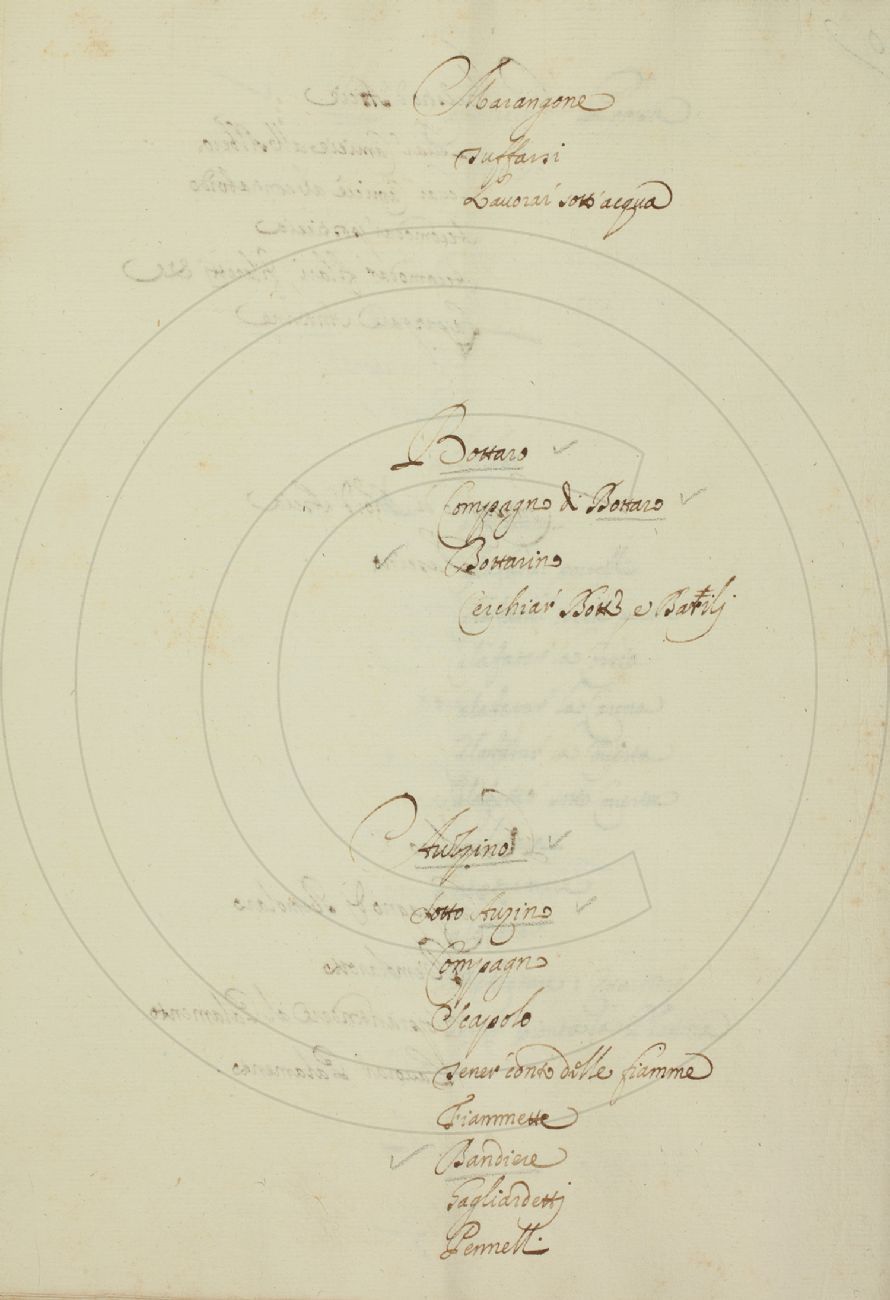 Marangone
Tuffarsi
Lavorar sott'acqua
Bottaro
Compagno di Bottaro
Bottarino
Cerchiar Botti e Barili
Auzzino
Sotto Auzino
Compagno
Scapolo
Tener conto delle fiamme
Fiammette
Bandiere
Gagliardetti
Pennelli